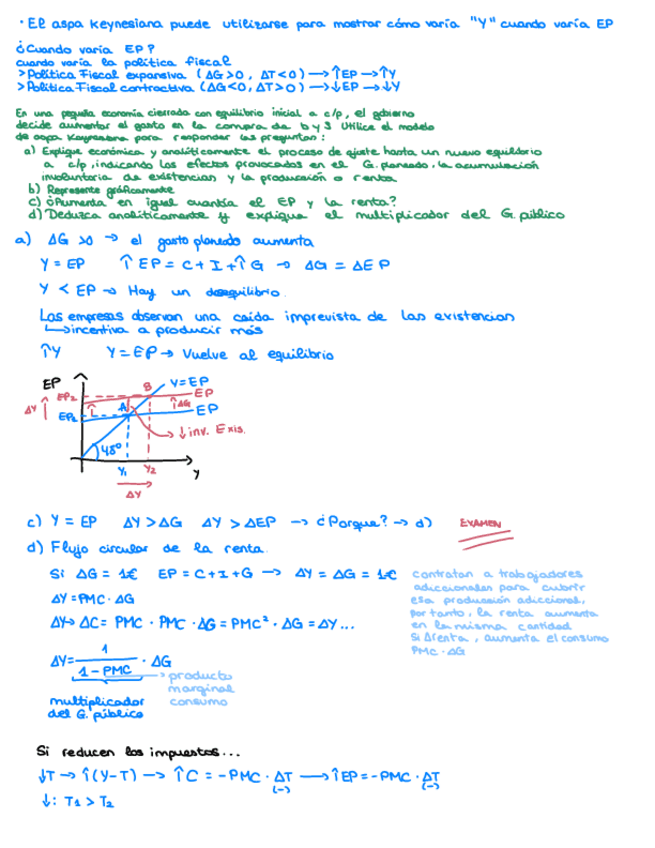 · El aspa Keynesiana puede utilizarse para mostrar cómo varía "Y" cuando varía EP
¿Cuando varía EP?
cuando varía la política fiscal
> Política Fiscal expansiva (ΔG>0, ΔT<0) → ↑EP → ↑Y
> Política Fiscal contractiva (ΔG<0, ΔT>0) → ↓EP → ↓Y
En una pequeña economía cerrada con equilibrio inicial a c/p, el gobierno
decide aumentar el gasto en la compra de b y s Utilice el modelo
de aspa Keynesiana para responder las preguntas:
a) Explique económica y analíticamente el proceso de ajuste hasta un nuevo equilibrio
a c/p, indicando los efectos provocados en el G. planeado, la acumulación
involuntaria de existencias y la producción o renta
b) Represente gráficamente
c) ¿Aumenta en igual cuantía el EP y la renta?
d) Deduzca analíticamente y explique el multiplicador del G. público
a) ΔG >0 → el gasto planeado aumenta
Y = EP ↑EP = C + I + ↑G → ΔG = ΔEP
Y < EP → Hay un desequilibrio.
Las empresas observan una caída imprevista de las existencias
↳ incentiva a producir más
↑Y Y = EP → Vuelve al equilibrio
EP
Y=EP
B
EP2
EP
ΔY ↑
↑ΔG
A
EP1
EP
↓ inv. Exis.
45º
Y1 Y2
Y
ΔY
c) Y = EP ΔY > ΔG ΔY > ΔEP → ¿Porque? → d)
EXAMEN
d) Flujo circular de la renta
Si ΔG = 1€ EP = C + I + G → ΔY = ΔG = 1€
contratan a trabajadores
adiccionales para cubrir
esa producción adiccional,
por tanto, la renta aumenta
en la misma cantidad.
Si Δrenta, aumenta el consumo
PMC · ΔG
ΔY = PMC · ΔG
ΔY→ ΔC = PMC · PMC · ΔG = PMC² · ΔG = ΔY...
ΔY = 1 / (1 - PMC) · ΔG
→ producto
marginal
consumo
multiplicador
del G. público
Si reducen los impuestos...
↓T → ↑(Y-T) → ↑C = -PMC · ΔT → ↑EP = -PMC · ΔT
(-) (-)
↓: T1 > T2